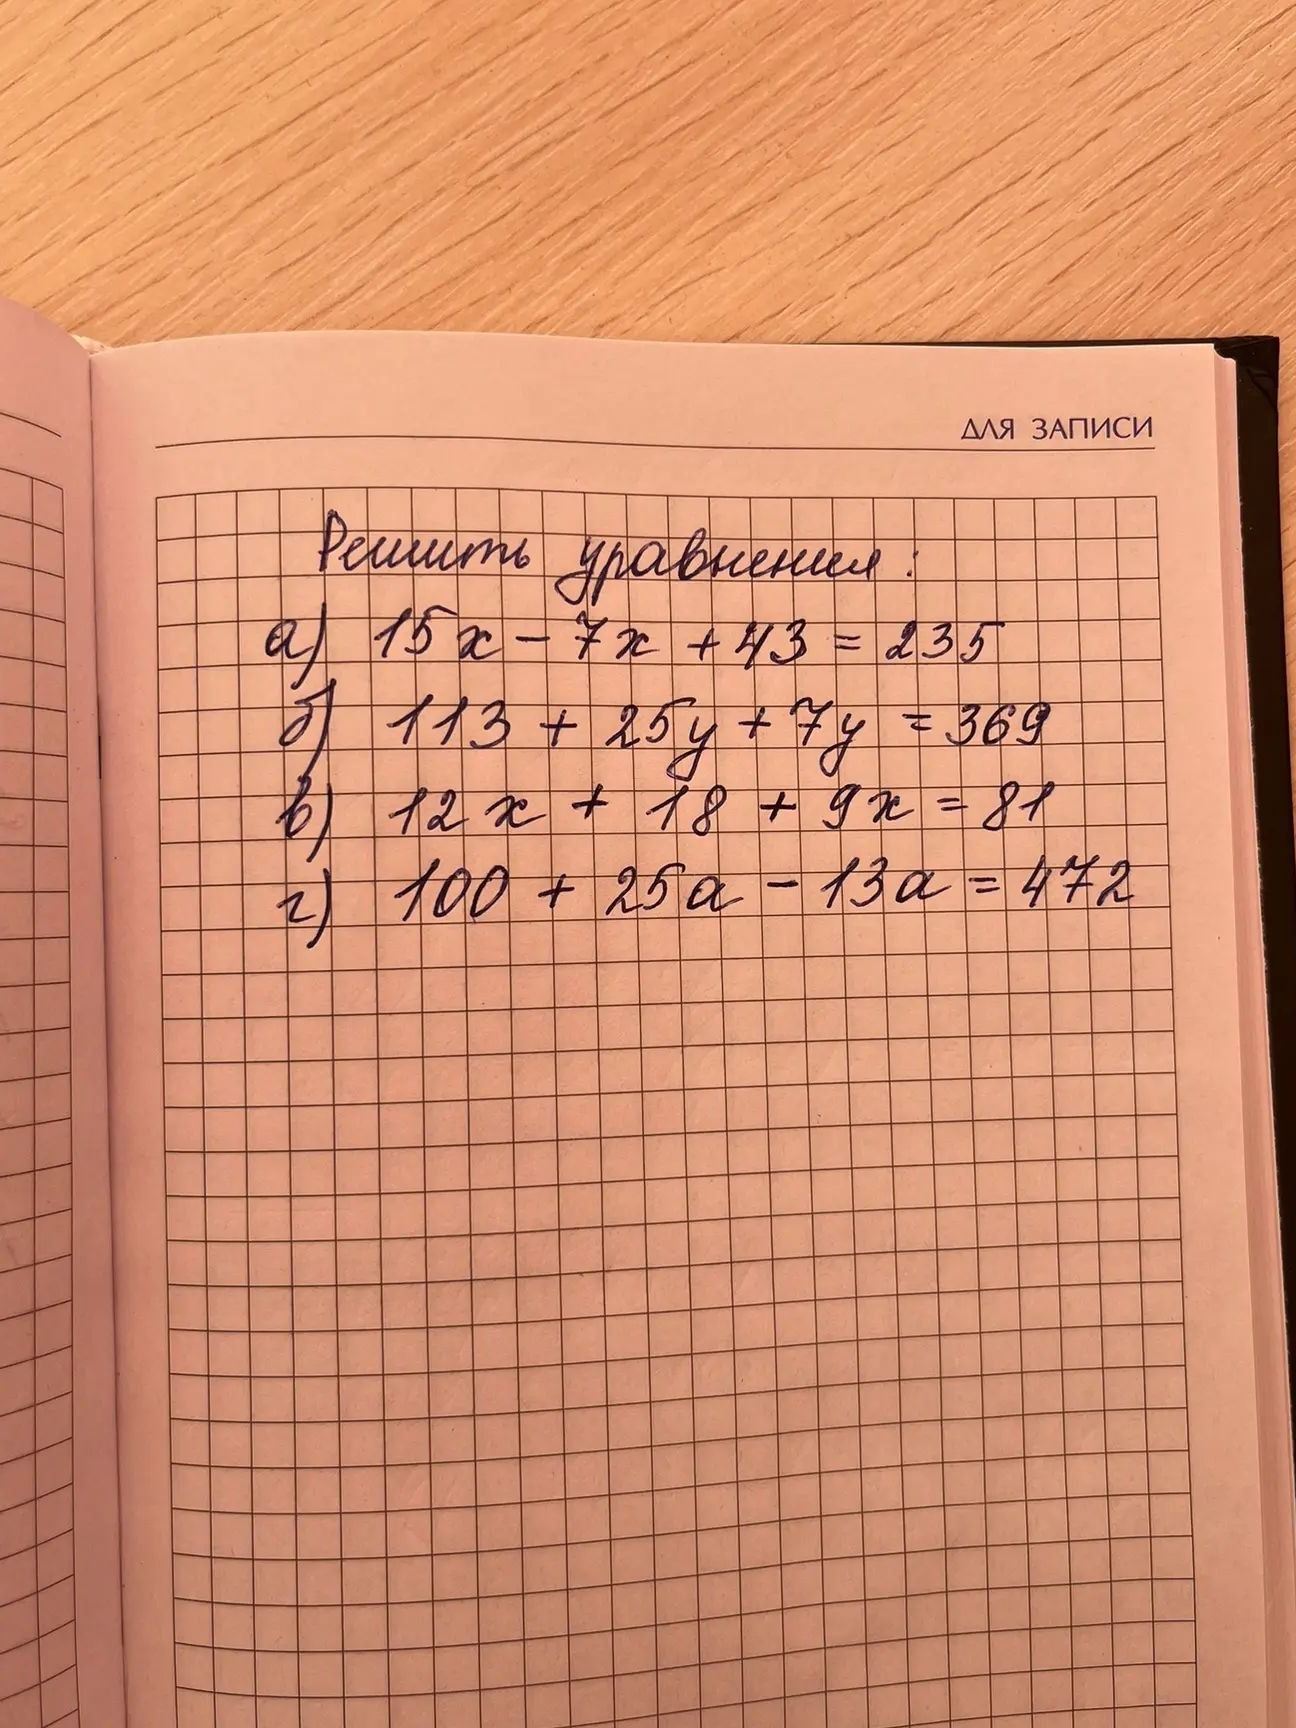 ДЛЯ ЗАПИСИ
Решить уравнения:
а) 15x - 7x + 43 = 235
б) 113 + 25y + 7y = 369
в) 12x + 18 + 9x = 81
г) 100 + 25a - 13a = 472